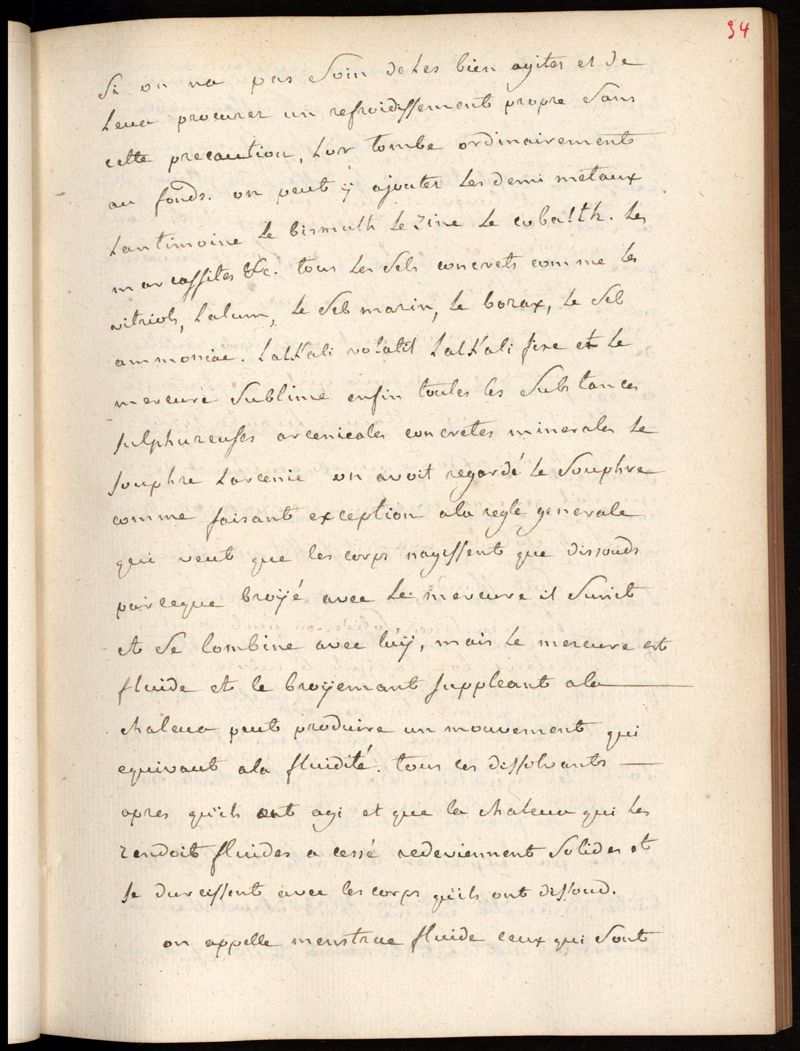 34
Si on na pas Soin deles bien agiter et de
Leur procurer un refroidissement propre Sans
cette precaution, Lor tombe ordinairement
au fonds. on peut ÿ ajouter Les demi metaux
Lantimoine Le bismuth Le Zinc Le cobalth. Les
marcassites &c. tous Les Sels concrets comme les
vitriols, Lalum, Le Sel marin, Le borax, Le Sel
ammoniac. LalKali volatil LalKali fixe et Le
mercure Sublimé enfin toutes les Substances
sulphureuses arcenicales concretes minerales Le
souphre Larcenic on avoit regardé Le Souphre
comme faisant exception ala regle generale
qui veut que les corps nagissent que dissouds
parceque broÿé avec Le mercure il Sunit
et Se Combine avec luÿ, mais Le mercure est
fluide et le broÿemant suppleant ala
chaleur peut produire un mouvement qui
equivaut ala fluidité. tous ces dissolvants
apres qu'ils ont agi et que la chaleur qui Les
rendoit fluides a cessé redeviennent Solides et
se durcissent avec les corps qu'ils ont dissoud.
on appelle menstrue fluide ceux qui Sont